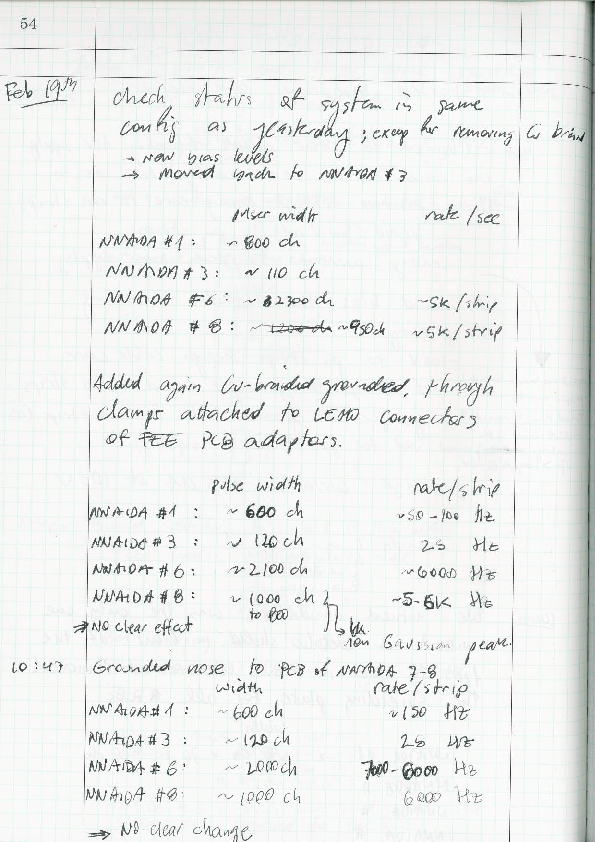 54
Feb 19th
check status of system in same
config as yesterday; except for removing Cu braid
→ New bias levels
→ moved back to NNAIDA #3
pulser width rate/sec
NNAIDA #1: ~800 ch
NNAIDA #3: ~110 ch
NNAIDA #6: ~2300 ch ~5K/strip
NNAIDA #8: ~1200 ch ~950ch ~5K/strip
Added again Cu-braided grounded, through
clamps attached to LEMO connectors
of FEE PCB adaptors.
pulse width rate/strip
NNAIDA #1 : ~600 ch ~50-100 Hz
NNAIDA #3 : ~120 ch 25 Hz
NNAIDA #6: ~2100 ch ~6000 Hz
NNAIDA #8: ~1000 ch ~5-6K Hz
to 800
⇒ No clear effect non Gaussian peak.
10:47 Grounded nose to PCB of NNAIDA 7-8
width rate/strip
NNAIDA #1: ~600 ch ~150 Hz
NNAIDA #3: ~120 ch 25 Hz
NNAIDA #6: ~2000 ch 7000-6000 Hz
NNAIDA #8: ~1000 ch 6000 Hz
⇒ No clear change